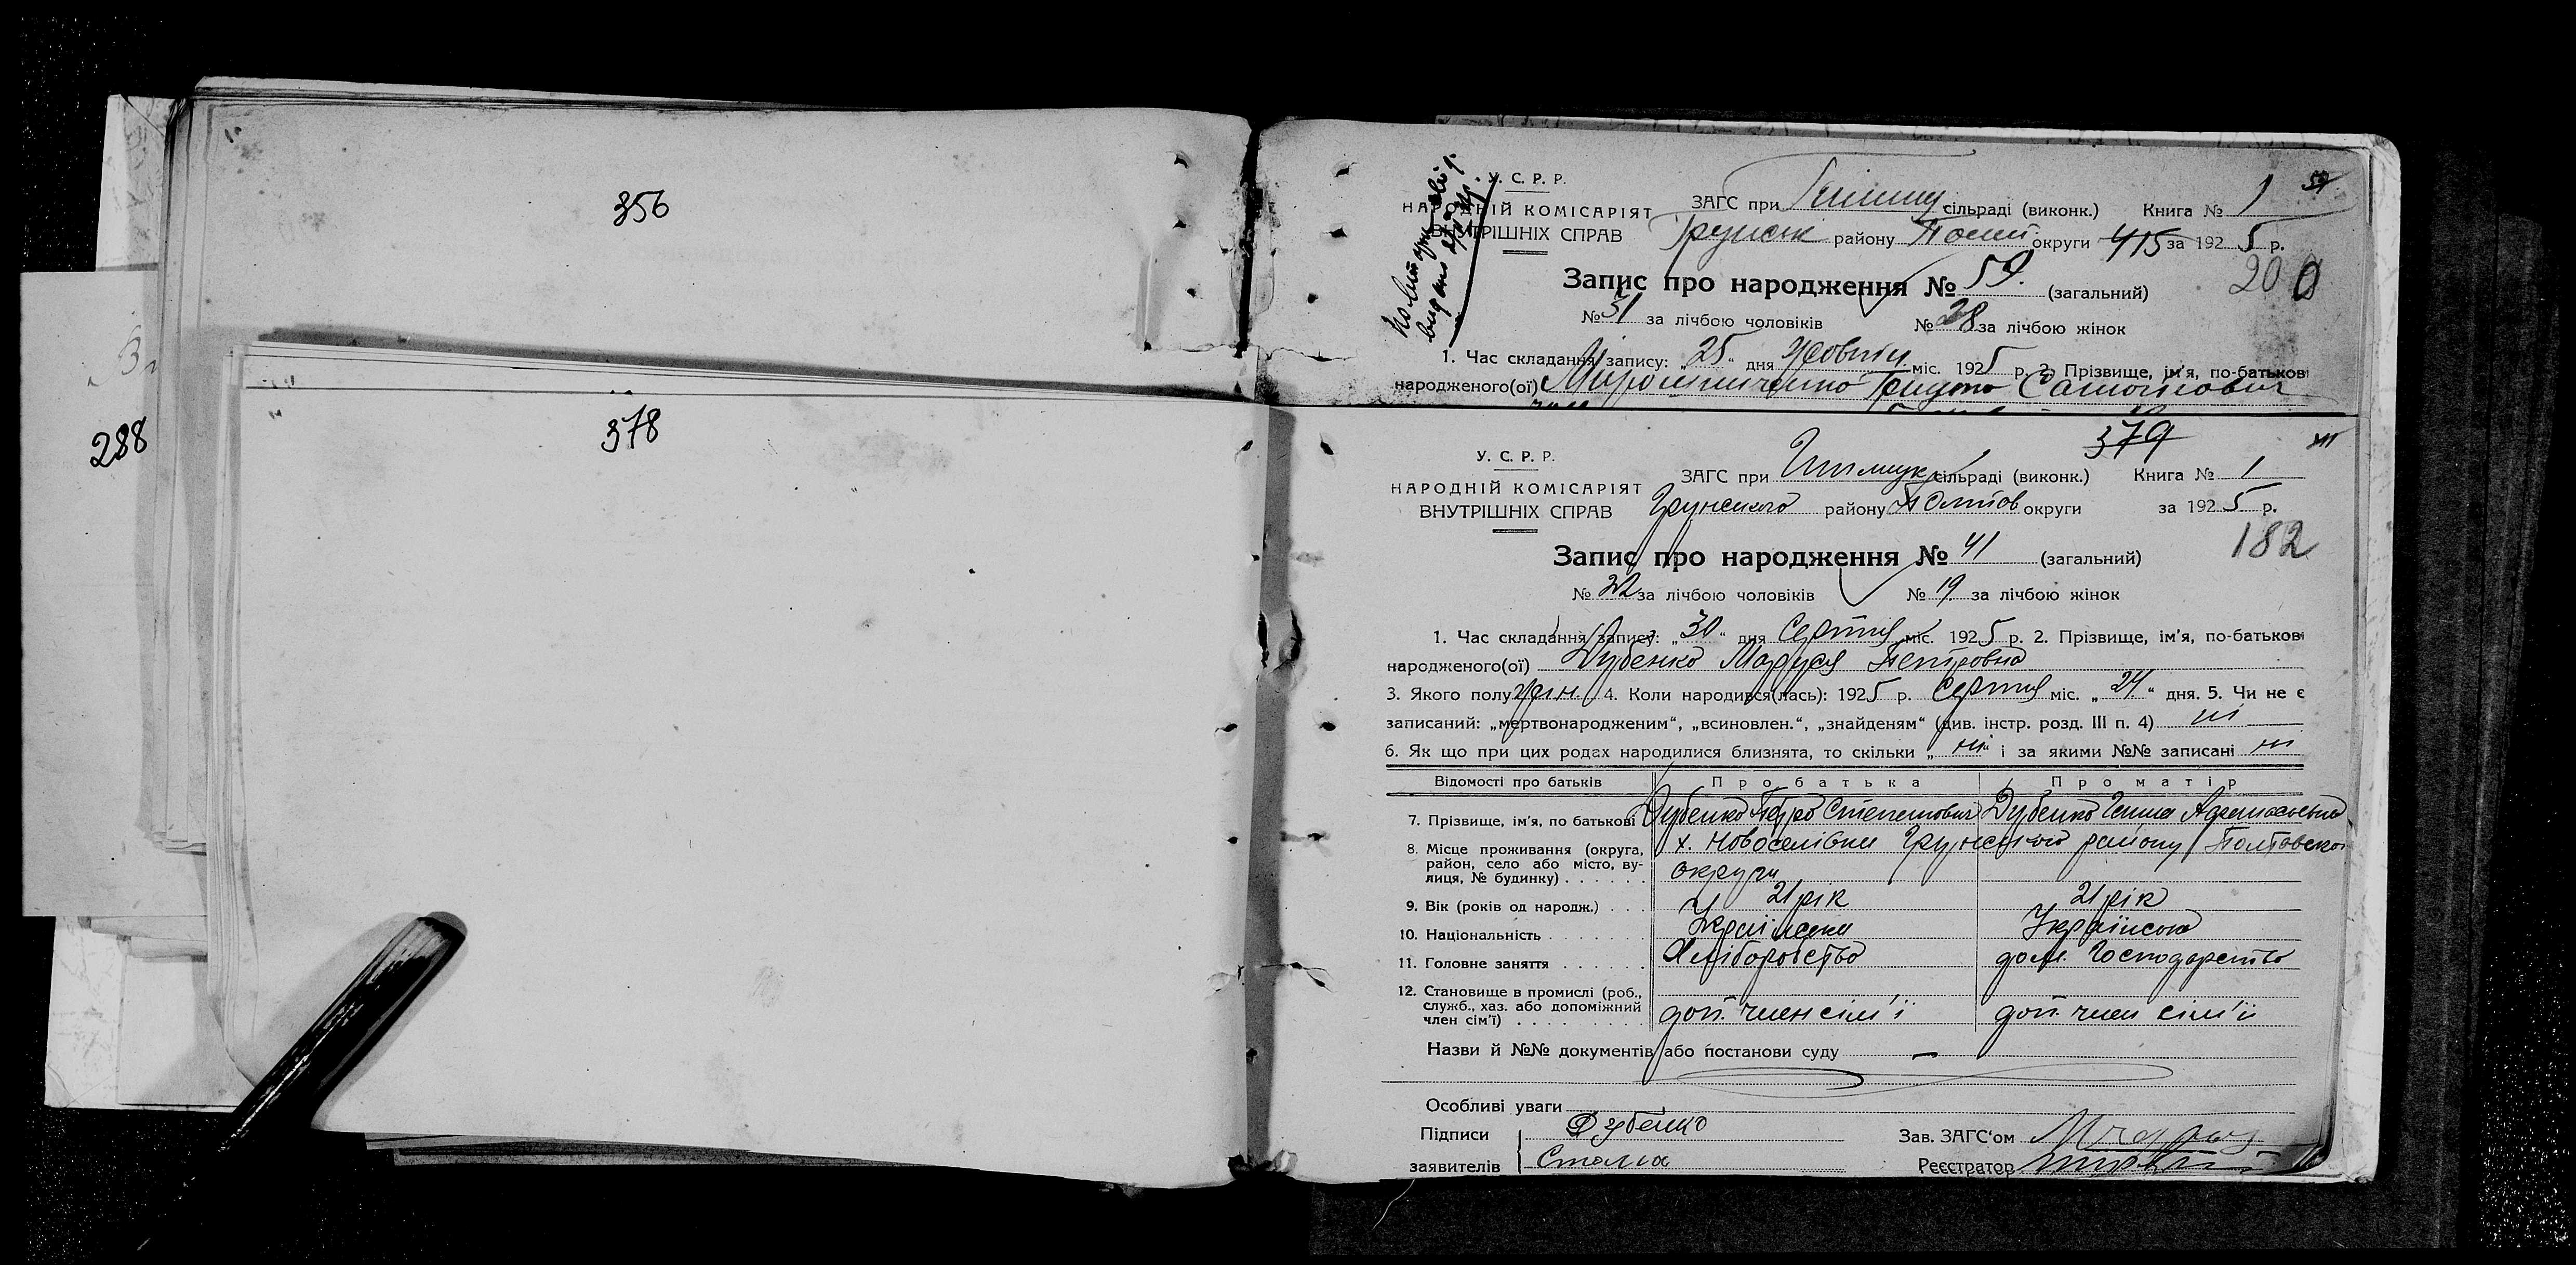 356
378
288
У. С. Р. Р.
НАРОДНІЙ КОМІСАРІЯТ
ВНУТРІШНІХ СПРАВ
ЗАГС при сільраді (виконк.) Книга № 1
59
району округи 415 за 1925 р.
200
Запис про народження № 59. (загальний)
№ 31 за лічбою чоловіків № 28 за лічбою жінок
1. Час складання запису: „25“ дня Жовтн міс. 1925 р. 2. Прізвище, ім'я, по-батькові
народженого(ої) Мирошниченко
379
У. С. Р. Р.
НАРОДНІЙ КОМІСАРІЯТ
ВНУТРІШНІХ СПРАВ
ЗАГС при сільраді (виконк.) Книга № 1
Грунського району Полтав округи за 1925 р.
182
Запис про народження № 41 (загальний)
№ 22 за лічбою чоловіків № 19 за лічбою жінок
1. Час складання запису: „30“ дня Серпня міс. 1925 р. 2. Прізвище, ім'я, по-батькові
народженого(ої) Дубенко Маруся Петровна
3. Якого полу жін. 4. Коли народився(лась): 1925 р. Серпня міс. „24“ дня. 5. Чи не є
записаний: „мертвонародженим“, „всиновлен.“, „знайденям“ (див. інстр. розд. III п. 4) ні
6. Як що при цих родах народилися близнята, то скільки „ні“ і за якими №№ записані ні
Відомості про батьків Про батька Про матір
7. Прізвище, ім'я, по батькові Дубенко Петро Степанович Дубенко
8. Місце проживання (округа, район, село або місто, вулиця, № будинку) х. Новоселівка Грунського району Полтавської
округи
9. Вік (років од народж.) 21 рік 21 рік
10. Національність Українська Українська
11. Головне заняття Хліборобство дом. Господарство
12. Становище в промислі (роб., служб., хаз. або допоміжний член сім'ї) доп. член сім'ї доп. член сім'ї
Назви й №№ документів або постанови суду —
Особливі уваги
Підписи Дубенко
заявителів
Зав. ЗАГС'ом
Реєстратор